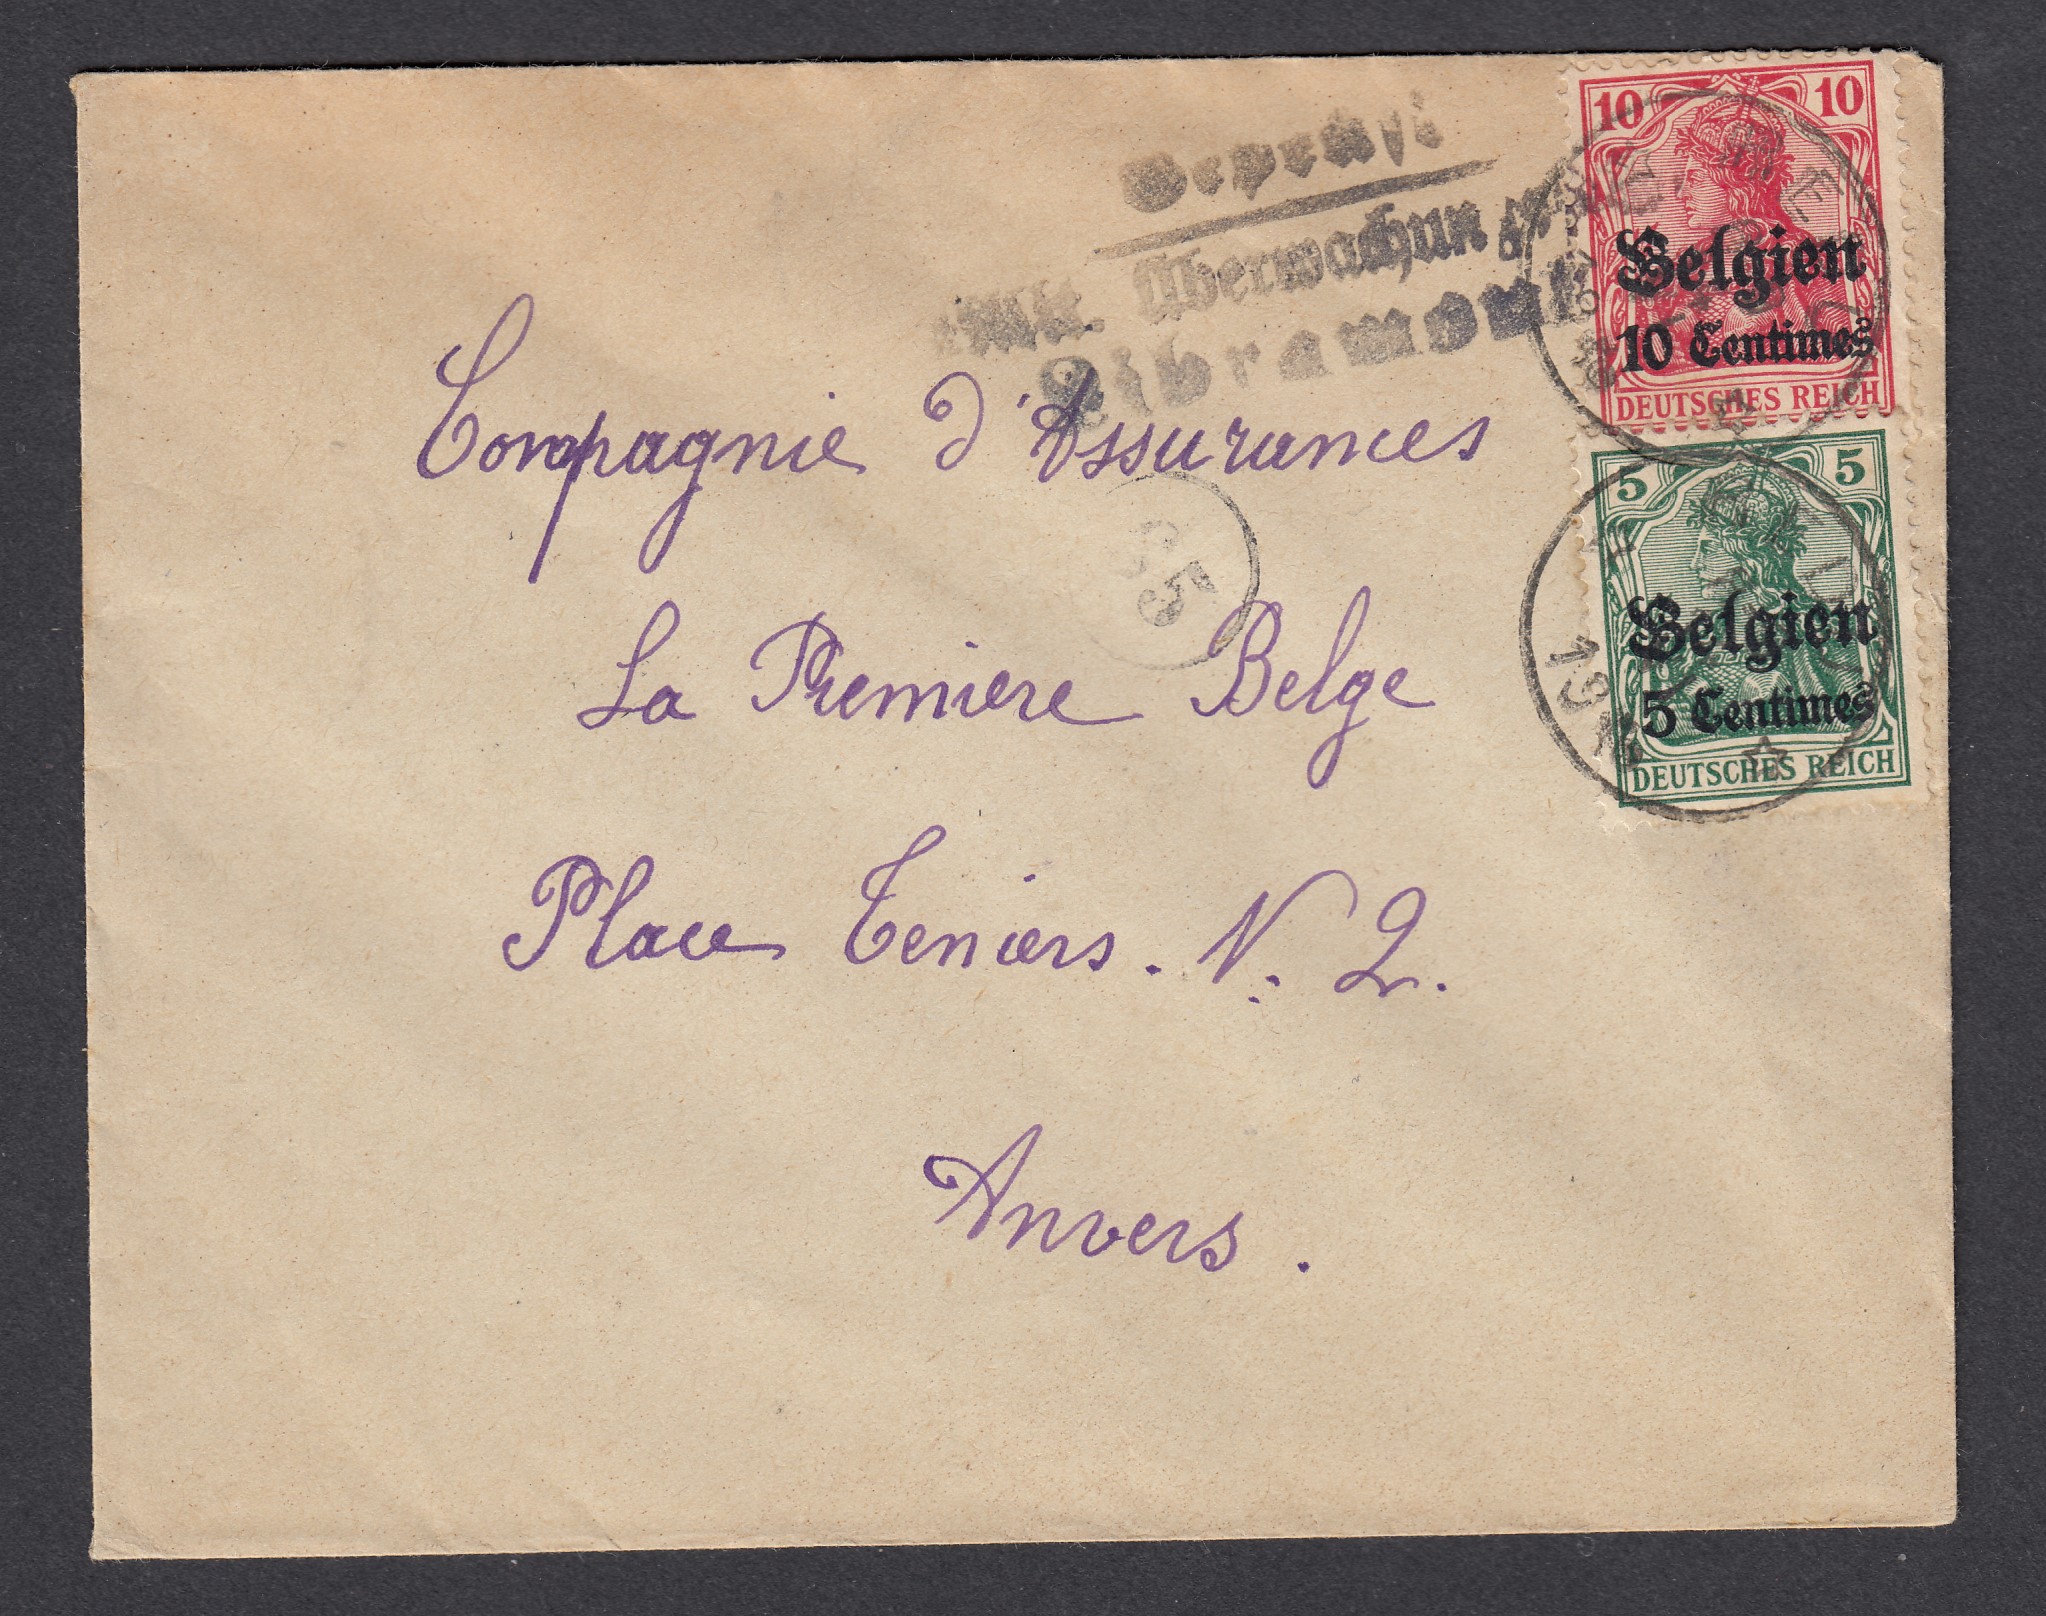 Geprüft
Mil. Überwachungs
Libramont
10 10
Belgien
10 Centimes
DEUTSCHES REICH
5 5
Belgien
5 Centimes
DEUTSCHES REICH
Compagnie d'Assurances
La Premiere Belge
Place Teniers. N: 2.
Anvers.